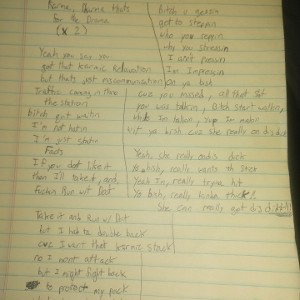 Karma, Karma thats
for the Drama
(x 2)
Yeah you say you
got that karmic Relaxation
but thats just miscommunication
Traffic coming in thro
the station
bitch got waitin
I'm not hatin
I'm just statin
Facts
If you dont like it
than I'll take it, and
Fuckin Run wit Dat
Take it and Run w/ Dat
but I had to double back
cuz I want that karmic stack
no I wont attack
but I might fight back
to protect my pack
Bitch u gassin
got to steppin
who you reppin
why you stressin
I aint pressin
Im Impressin
on ya bish
cuz you missed, all that shit
you was talkin, Bitch start walkin,
while Im talkin, Yup Im
wit ya bish cuz she really on dis dick
Yeah, she really on dis dick
Yo bish, really wanta
Yeah Im, really tryna hit
Yo bish, really kinda thick!
She can really get dis d